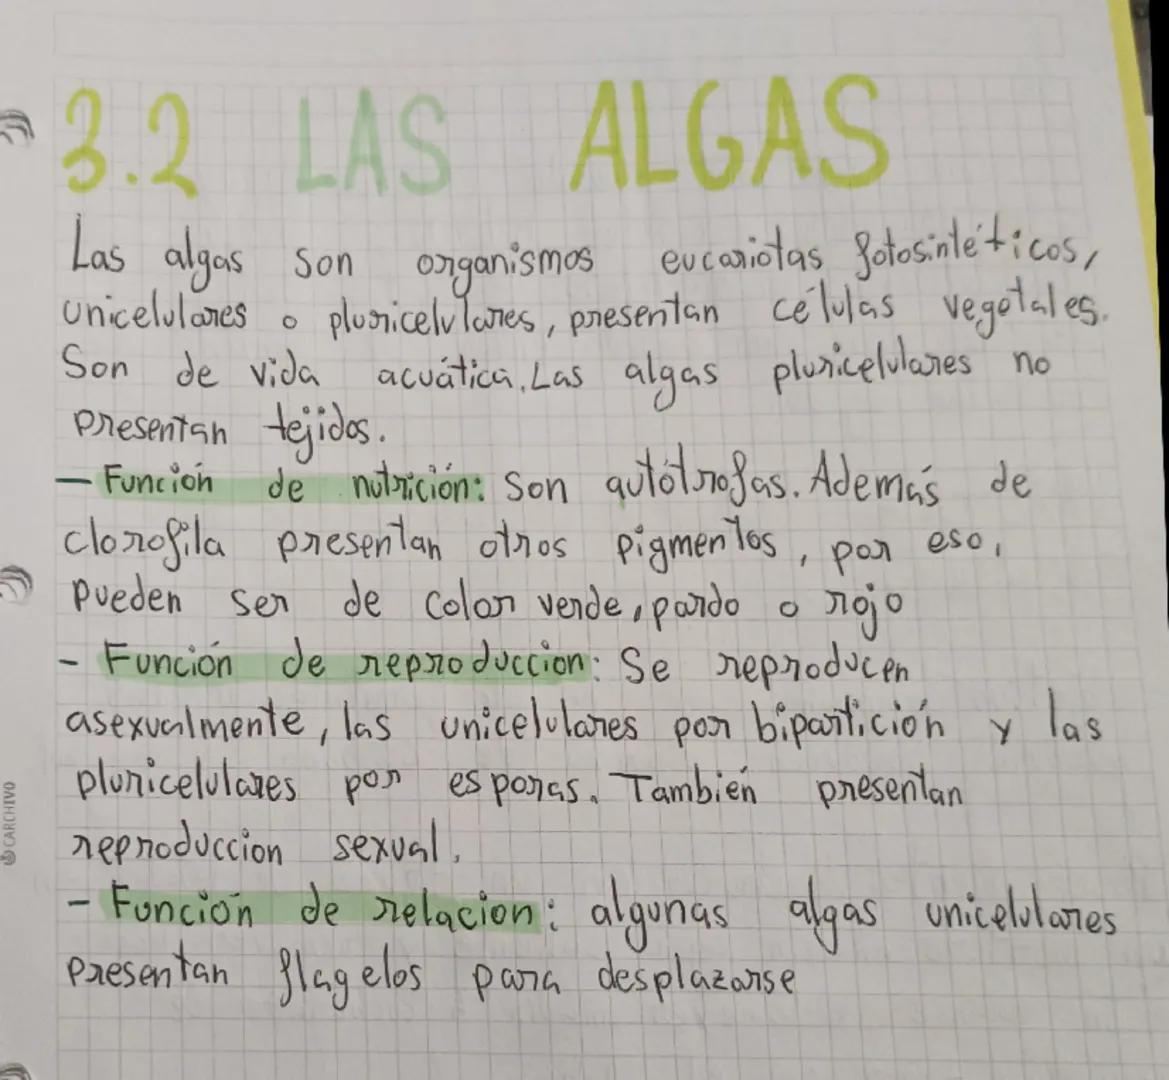 3.2 LAS ALGAS
Las algas son organismos eucariotas fotosintéticos,
unicelulares o pluricelulares, presentan células vegetales.
Son de vida acuática. Las algas pluricelulares no
presentan tejidos.
- Función de nutrición: Son autótrofas. Además de
clorofila presentan otros pigmentos, por eso,
pueden ser de color verde, pardo o rojo
- Función de reproduccion: Se reproducen
asexualmente, las unicelulares por bipartición y las
pluricelulares por esporas. También presentan
reproduccion sexual.
- Función de relacion: algunas algas unicelulares
presentan flagelos para desplazarse
CARCHIVO